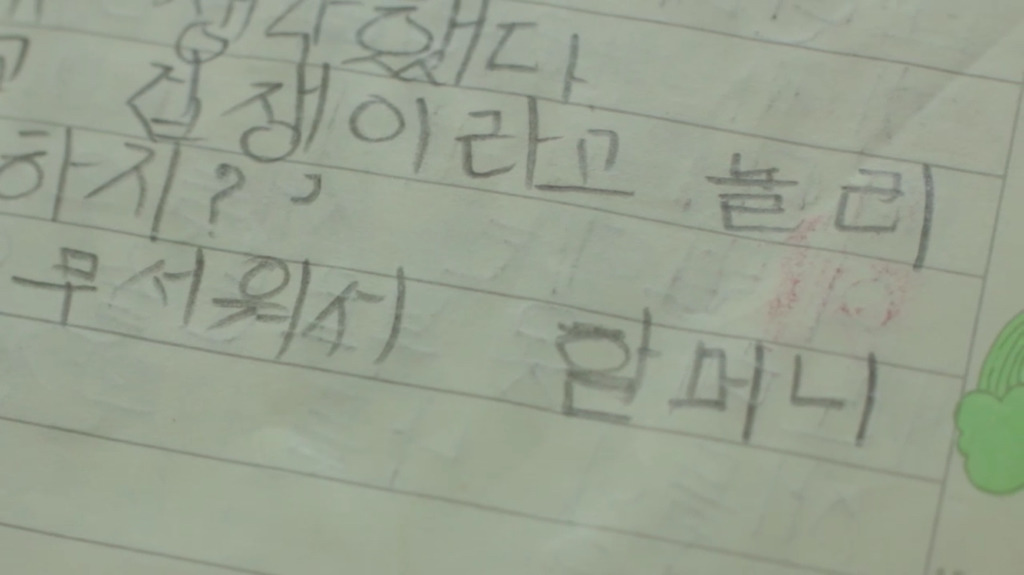 생각했다
겁쟁이라고 놀리
하지?’
무서워서 할머니